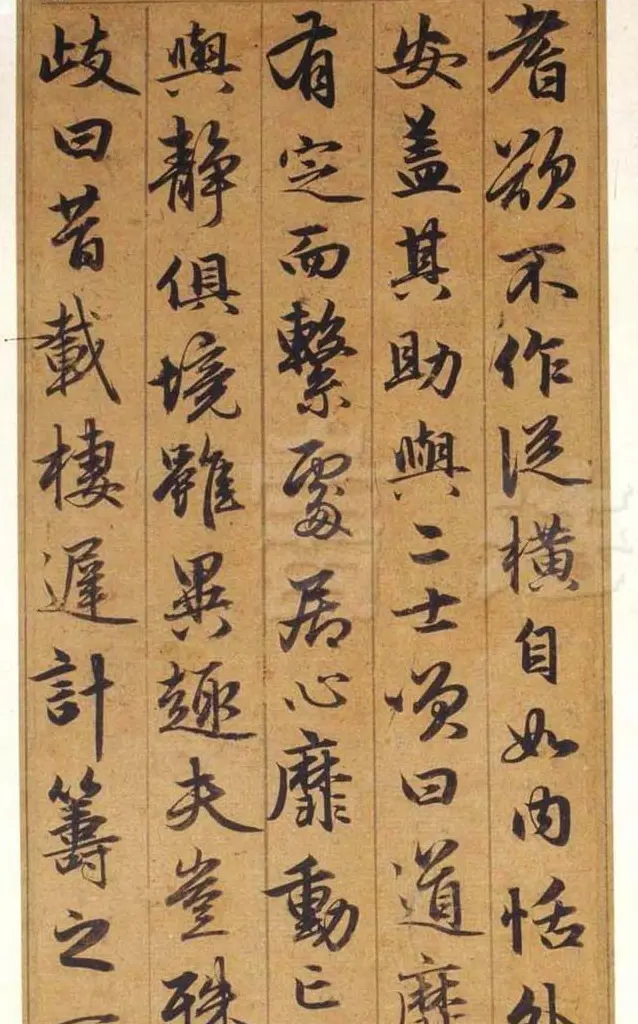 耆欲不作從橫自如内恬外
安蓋其助與二士頌曰道靡
有定而繫處居心靡動亡
與静俱境雖異趣夫豈殊
歧曰昔載棲遲計籌之